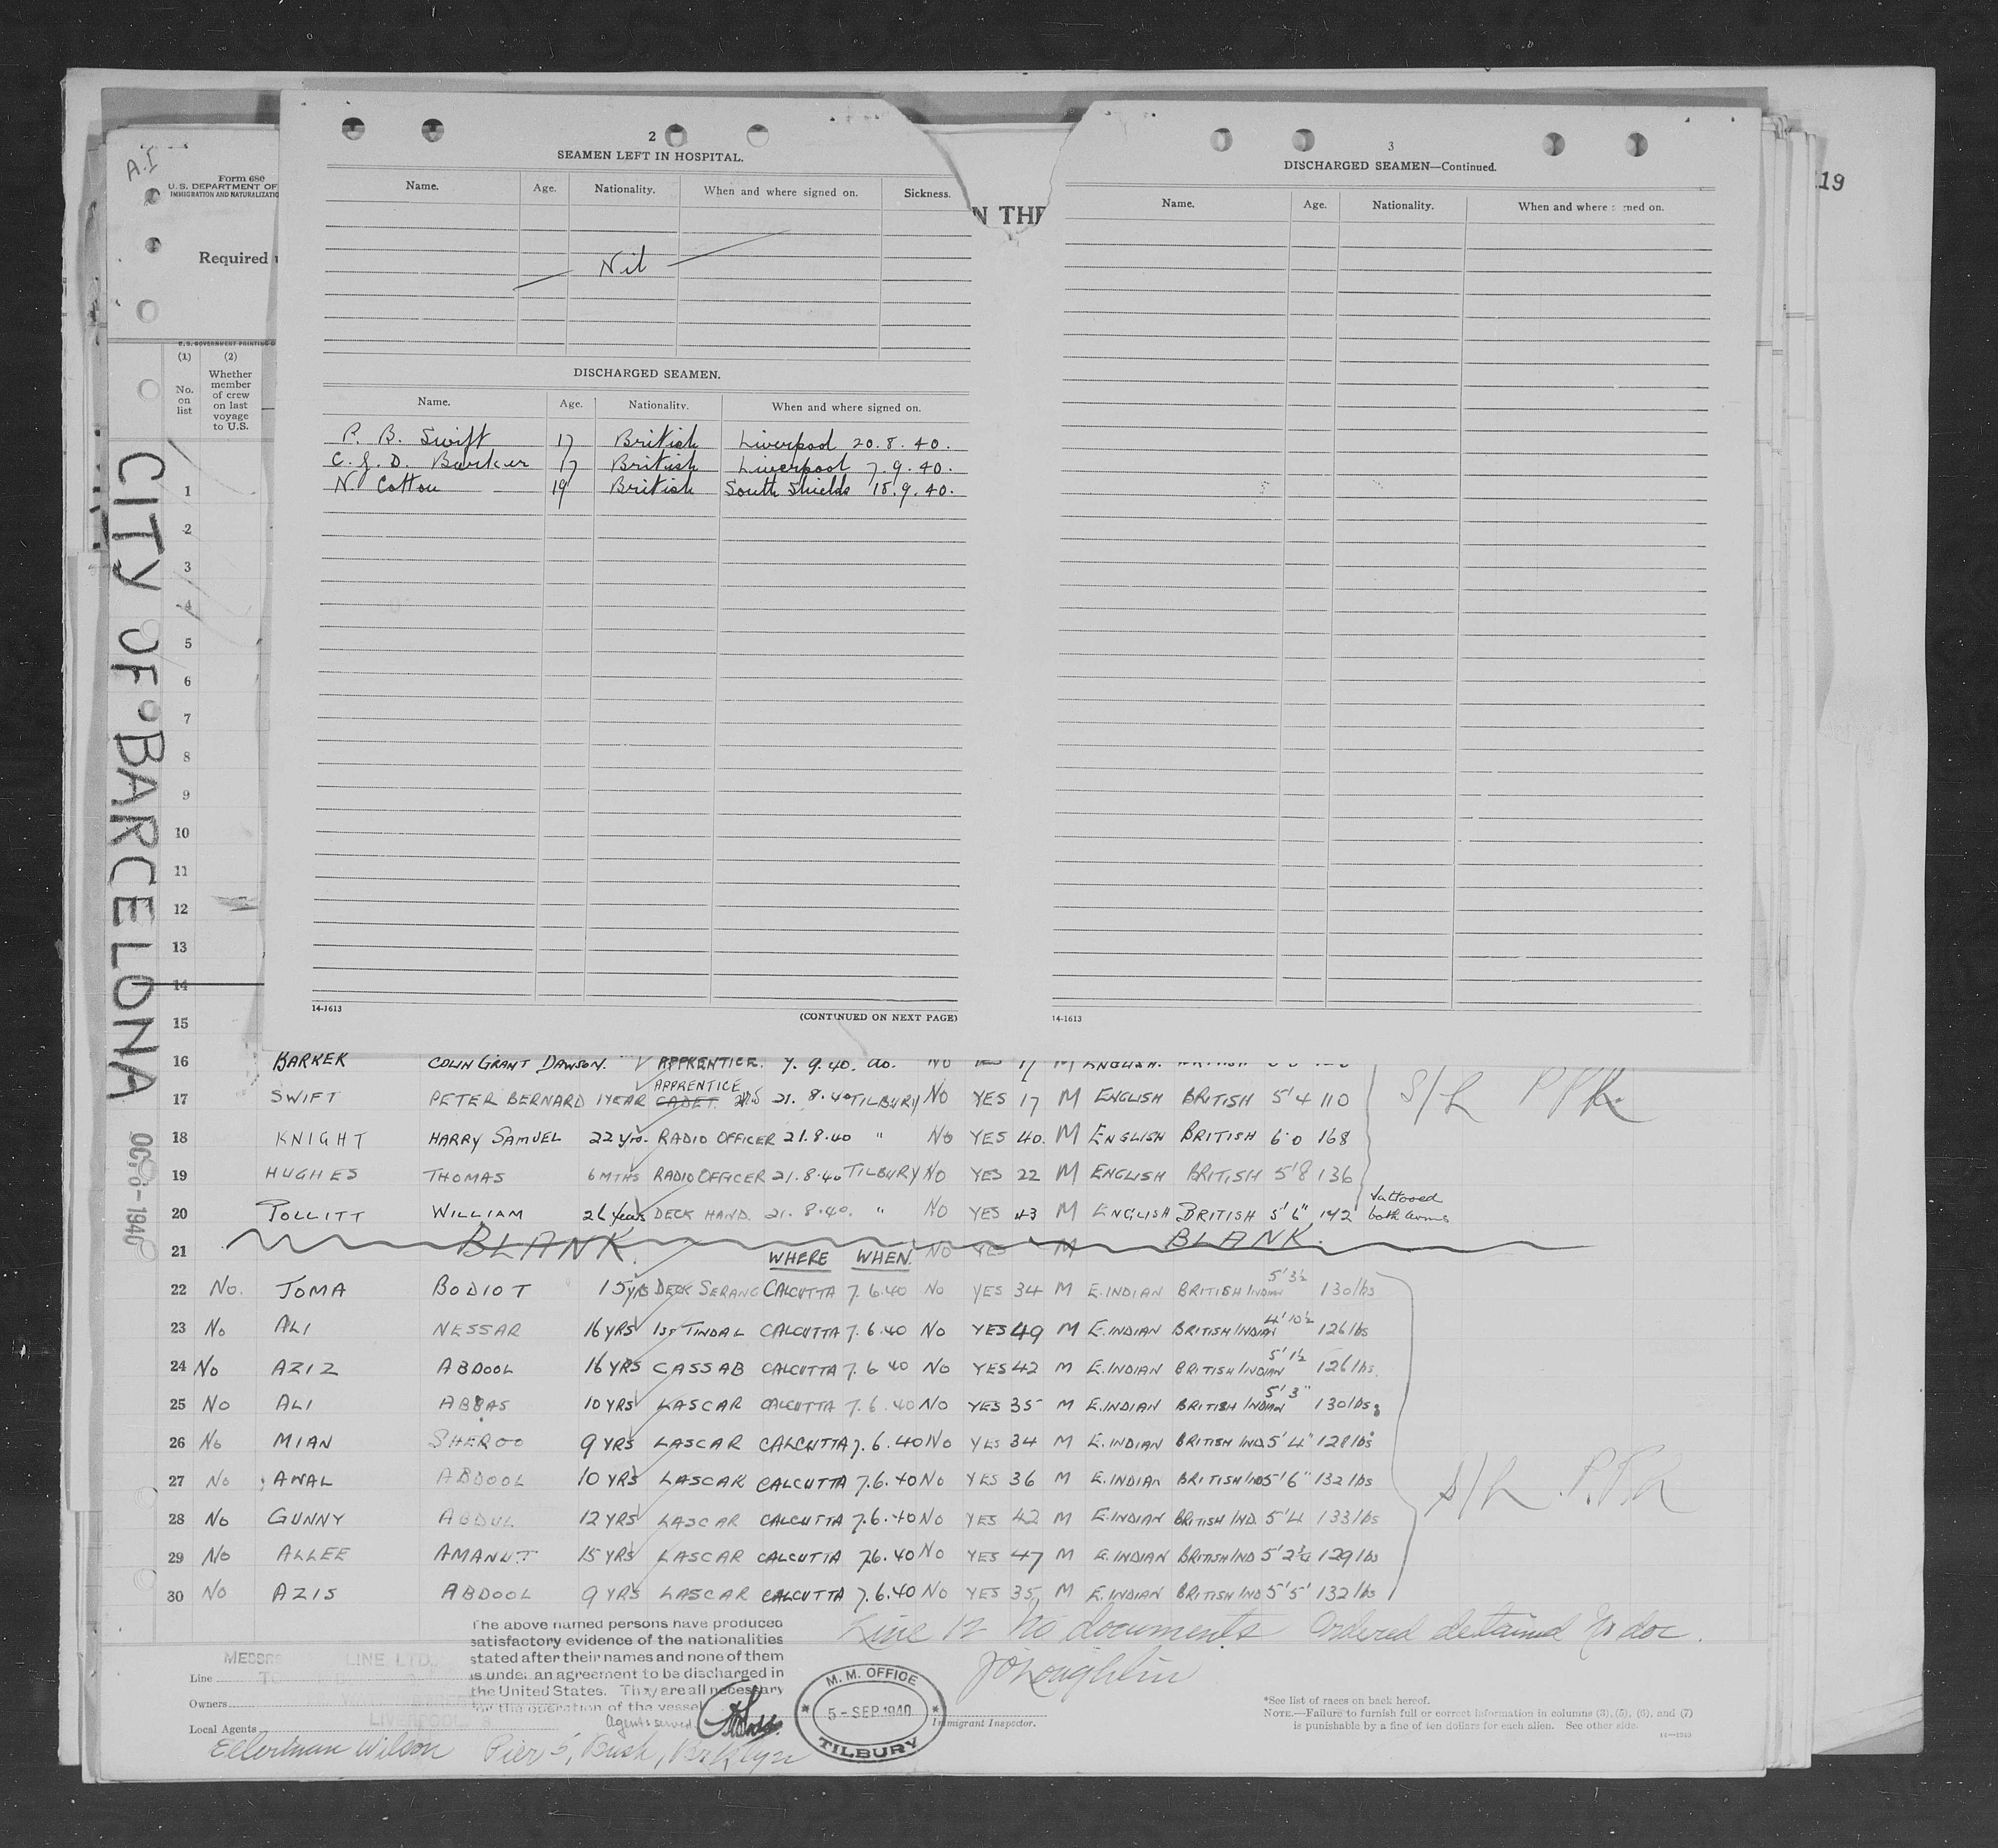 A.I
Form 680
U.S. DEPARTMENT OF
IMMIGRATION AND NATURALIZATIO
Required
19
N THE
2
SEAMEN LEFT IN HOSPITAL.
Name. Age. Nationality. When and where signed on. Sickness.
Nil
DISCHARGED SEAMEN.
Name. Age. Nationality. When and where signed on.
P. B. Swift 17 British Liverpool 20.8.40.
C. G. D. Barker 17 British Liverpool 7.9.40.
N. Cotton 19 British South Shields 18.9.40.
14-1613
(CONTINUED ON NEXT PAGE)
3
DISCHARGED SEAMEN—Continued.
Name. Age. Nationality. When and where signed on.
14-1613
U.S. GOVERNMENT PRINTING O
(1) (2)
No. on list
Whether member of crew on last voyage to U.S.
CITY OF BARCELONA
OCT 8-1940
1
2
3
4
5
6
7
8
9
10
11
12
13
14
15
16 BARKER COLIN GRANT DAWSON. APPRENTICE. 7.9.40. do. NO YES 17 M ENGLISH. BRITISH
APPRENTICE
17 SWIFT PETER BERNARD 1 YEAR CADET 21.8.40 TILBURY NO YES 17 M ENGLISH BRITISH 5'4 110
18 KNIGHT HARRY SAMUEL 22 yrs. RADIO OFFICER 21.8.40 " No YES 40. M ENGLISH BRITISH 6'0 168
19 HUGHES THOMAS 6 MTHS RADIO OFFICER 21.8.40 TILBURY NO YES 22 M ENGLISH BRITISH 5'8 136
20 POLLITT WILLIAM 26 Years DECK HAND. 21.8.40. " NO YES 43 M ENGLISH BRITISH 5'6" 142 tattooed both arms
21 BLANK. NO YES M BLANK.
WHERE WHEN.
22 No. TOMA BODIOT 15 yrs DECK SERANG CALCUTTA 7.6.40 No YES 34 M E.INDIAN BRITISH INDIAN 5'3½ 130 lbs
23 No ALI NESSAR 16 YRS 1ST TINDAL CALCUTTA 7.6.40 NO YES 49 M E.INDIAN BRITISH INDIAN 4'10½ 126 lbs
24 No AZIZ ABDOOL 16 YRS CASSAB CALCUTTA 7.6 40 No YES 42 M E.INDIAN BRITISH INDIAN 5'1½ 126 lbs.
25 No ALI ABBAS 10 YRS LASCAR CALCUTTA 7.6.40 NO YES 35 M E.INDIAN BRITISH INDIAN 5'3" 130 lbs
26 No MIAN SHEROO 9 YRS LASCAR CALCUTTA 7.6.40 No YES 34 M E.INDIAN BRITISH IND 5'4" 128 lbs
27 No AWAL ABDOOL 10 YRS LASCAR CALCUTTA 7.6.40 No YES 36 M E.INDIAN BRITISH IND 5'6" 132 lbs
28 No GUNNY ABDUL 12 YRS LASCAR CALCUTTA 7.6.40 No YES 42 M E.INDIAN BRITISH IND. 5'4 133 lbs
29 No ALLEE AMANUT 15 YRS LASCAR CALCUTTA 7.6.40 No YES 47 M E.INDIAN BRITISH IND 5'2¾ 129 lbs
30 No AZIS ABDOOL 9 YRS LASCAR CALCUTTA 7.6.40 NO YES 35 M E.INDIAN BRITISH IND 5'5' 132 lbs
The above named persons have produced
satisfactory evidence of the nationalities
stated after their names and none of them
is under an agreement to be discharged in
the United States. They are all necessary
for the operation of the vessel
Line 12 No documents Ordered detained No doc.
J O'Loughlin
Immigrant Inspector.
Line
MESSRS LINE LTD.,
Owners
Local Agents
LIVERPOOL
Agents served
Ellerman Wilson Pier 5, Bush, Brklyn
M. M. OFFICE
5 - SEP 1940
TILBURY
*See list of races on back hereof.
NOTE.—Failure to furnish full or correct information in columns (3), (5), (6), and (7)
is punishable by a fine of ten dollars for each alien. See other side.